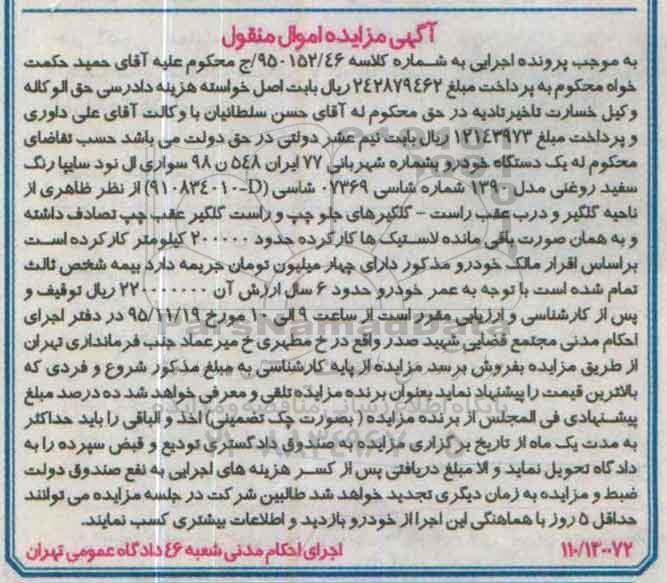 آگهی مزایده اموال منقول
به موجب پرونده اجرایی به شماره کلاسه ۹۵۰۱۵۲/۴۶/ج محکوم علیه آقای حمید حکمت
خواه محکوم به پرداخت مبلغ ۲۴۲۸۷۹۴۶۲ ریال بابت اصل خواسته هزینه دادرسی حق الوکاله
وکیل خسارت تاخیرتادیه در حق محکوم له آقای حسن سلطانیان با وکالت آقای علی داوری
و پرداخت مبلغ ۱۲۱۴۳۹۷۳ ریال بابت نیم عشر دولتی در حق دولت می باشد حسب تقاضای
محکوم له یک دستگاه خودرو بشماره شهربانی ۷۷ ایران ۵۴۸ ن ۹۸ سواری ال نود سایپا رنگ
سفید روغنی مدل ۱۳۹۰ شماره شاسی ۰۷۳۶۹ شاسی (D-۹۱۰۸۳۴۰۱۰) از نظر ظاهری از
ناحیه گلگیر و درب عقب راست - گلگیرهای جلو چپ و راست گلگیر عقب چپ تصادف داشته
و به همان صورت باقی مانده لاستیک ها کارکرده حدود ۲۰۰۰۰۰ کیلومتر کارکرده است
براساس اقرار مالک خودرو مذکور دارای چهار میلیون تومان جریمه دارد بیمه شخص ثالث
تمام شده است با توجه به عمر خودرو حدود ۶ سال ارزش آن ۲۲۰۰۰۰۰۰۰ ریال توقیف و
پس از کارشناسی و ارزیابی مقرر است از ساعت ۹ الی ۱۰ مورخ ۹۵/۱۱/۱۹ در دفتر اجرای
احکام مدنی مجتمع قضایی شهید صدر واقع در خ مطهری خ میرعماد جنب فرمانداری تهران
از طریق مزایده بفروش برسد مزایده از پایه کارشناسی به مبلغ مذکور شروع و فردی که
بالاترین قیمت را پیشنهاد نماید بعنوان برنده مزایده تلقی و معرفی خواهد شد ده درصد مبلغ
پیشنهادی فی المجلس از برنده مزایده ( بصورت چک تضمینی) اخذ و الباقی را باید حداکثر
به مدت یک ماه از تاریخ برگزاری مزایده به صندوق دادگستری تودیع و قبض سپرده را به
دادگاه تحویل نماید و الا مبلغ دریافتی پس از کسر هزینه های اجرایی به نفع صندوق دولت
ضبط و مزایده به زمان دیگری تجدید خواهد شد طالبین شرکت در جلسه مزایده می توانند
حداقل ۵ روز با هماهنگی این اجرا از خودرو بازدید و اطلاعات بیشتری کسب نمایند.
۱۱۰/۱۳۰۰۷۲ اجرای احکام مدنی شعبه ۴۶ دادگاه عمومی تهران
ParsNamadData